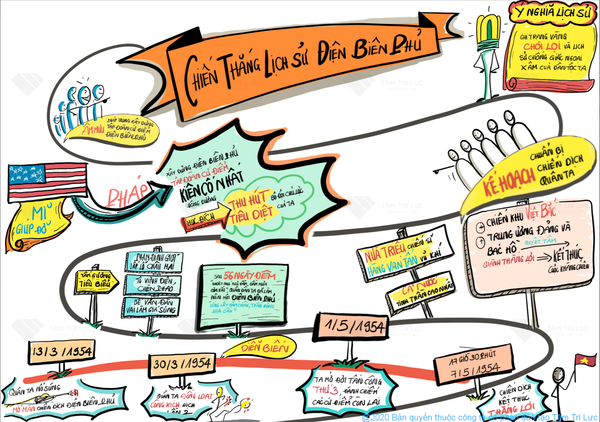 CHIẾN THẮNG LỊCH SỬ ĐIỆN BIÊN PHỦ
Ý NGHĨA LỊCH SỬ
GHI TRANG VÀNG
CHÓI LỌI VÀ LỊCH
SỬ CHỐNG GIẶC NGOẠI
XÂM CỦA DÂN TỘC TA
ÂM MƯU
PHÁP
TẬP ĐOÀN CỨ ĐIỂM
ĐIỆN BIÊN PHỦ
MĨ
GIÚP ĐỠ
PHÁP
XÂY DỰNG ĐIỆN BIÊN PHỦ
TẬP ĐOÀN CỨ ĐIỂM
KIÊN CỐ NHẤT
ĐÔNG DƯƠNG
MỤC ĐÍCH
THU HÚT
TIÊU DIỆT
BỘ ĐỘI CHỦ LỰC
CỦA TA
KẾ HOẠCH
CHUẨN BỊ
CHIẾN DỊCH
QUÂN TA
CHIẾN KHU VIỆT BẮC
TRUNG ƯƠNG ĐẢNG VÀ
BÁC HỒ
QUYẾT TÂM
GIÀNH THẮNG LỢI
KẾT THÚC
CUỘC KHÁNG CHIẾN
NỬA TRIỆU CHIẾN SĨ
HÀNG VẠN TẤN VŨ KHÍ
CẢ NƯỚC
TINH THẦN CAO NHẤT
TẤM GƯƠNG
TIÊU BIỂU
PHAN ĐÌNH GIÓT
LẤP LỖ CHÂU MAI
TÔ VĨNH DIỆN
CHÈN PHÁO
BẾ VĂN ĐÀN
VAI LÀM GIÁ SÚNG
SAU 56 NGÀY ĐÊM
ĐIỆN BIÊN PHỦ
DIỄN BIẾN
13/3/1954
30/3/1954
1/5/1954
17 GIỜ 30 PHÚT
7/5/1954
QUÂN TA NỔ SÚNG
MỞ MÀN CHIẾN DỊCH ĐIỆN BIÊN PHỦ
QUÂN TA ĐỒNG LOẠT
CÔNG KÍCH ĐỊCH
LẦN 2
TA MỞ ĐỢT TẤN CÔNG
THỨ 3, ĐÁNH CHIẾM
CÁC CỨ ĐIỂM CÒN LẠI
CHIẾN DỊCH
KẾT THÚC
THẮNG LỢI
©2020 Bản quyền thuộc công ty
Tâm Trí Lực